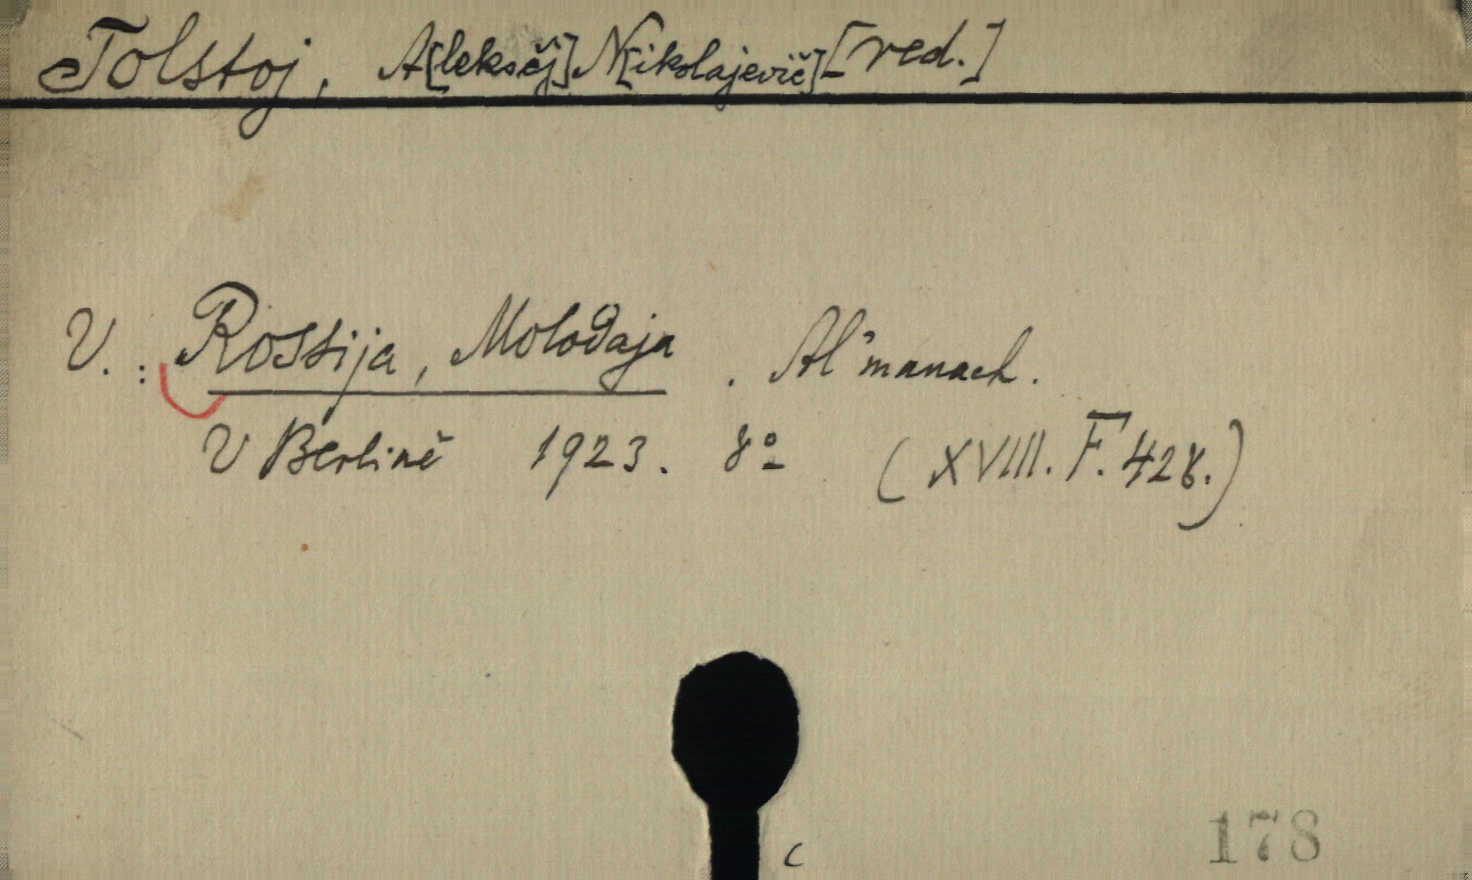 Tolstoj, A[leksěj] N[ikolajevič] [red.]
V.: Rossija, Molodaja. Al'manach.
V Berlině 1923. 8º (XVIII. F. 428.)
c
178